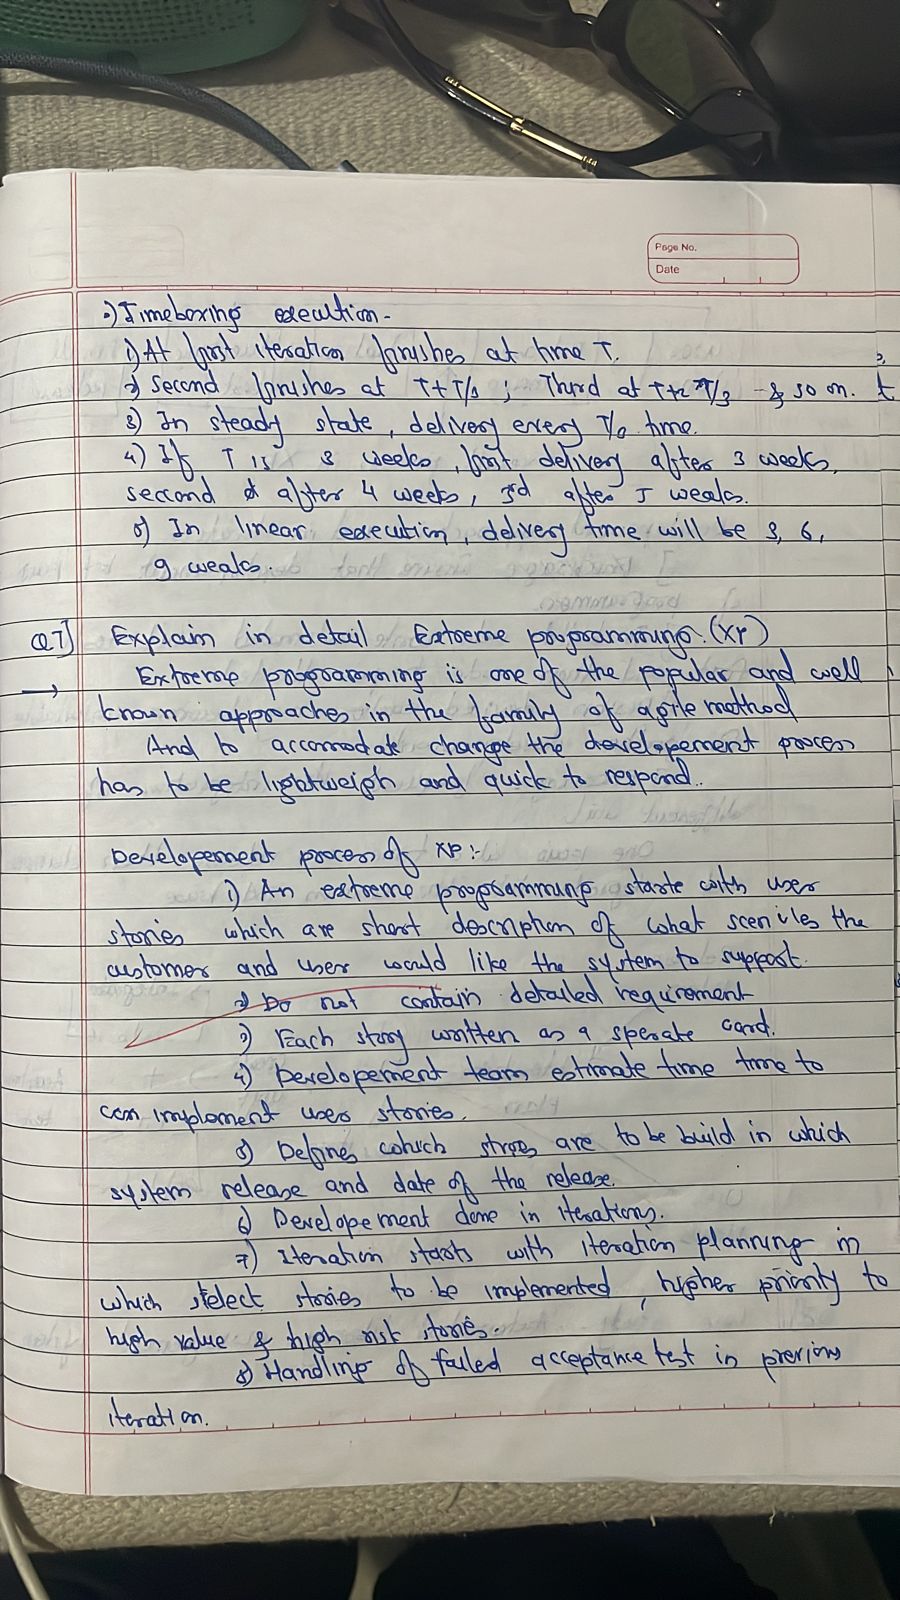 Page No.
Date
:) Timeboxing execution -
1) At first iteration finishes at time T.
2) Second finishes at T+T/3 ; Third at T+2 T/3 & so on. t
3) In steady state, delivery every T/3 time.
4) If T is 3 weeks, first delivery after 3 weeks,
second after 4 weeks, 3rd after 5 weeks.
5) In linear execution, delivery time will be 3, 6,
9 weeks.
Q7] Explain in detail Extreme programming. (XP)
→ Extreme programming is one of the popular and well
known approaches in the family of agile method
And to accomodate change the developement process
has to be lightweigh and quick to respond.
Developement process of XP:
1) An extreme programming starts with user
stories which are short description of what the
customer and user would like the system to support.
2) Do not contain detailed requirement
3) Each story written as a sperate card.
4) Developement team estimate time time to
can implement user stories.
5) Defines which are to be build in which
system release and date of the release.
6) Developement done in iterations.
7) Iteration starts with iteration planning in
which select stories to be implemented, higher priority to
high value & high risk stories.
8) Handling of failed acceptance test in previous
iteration.